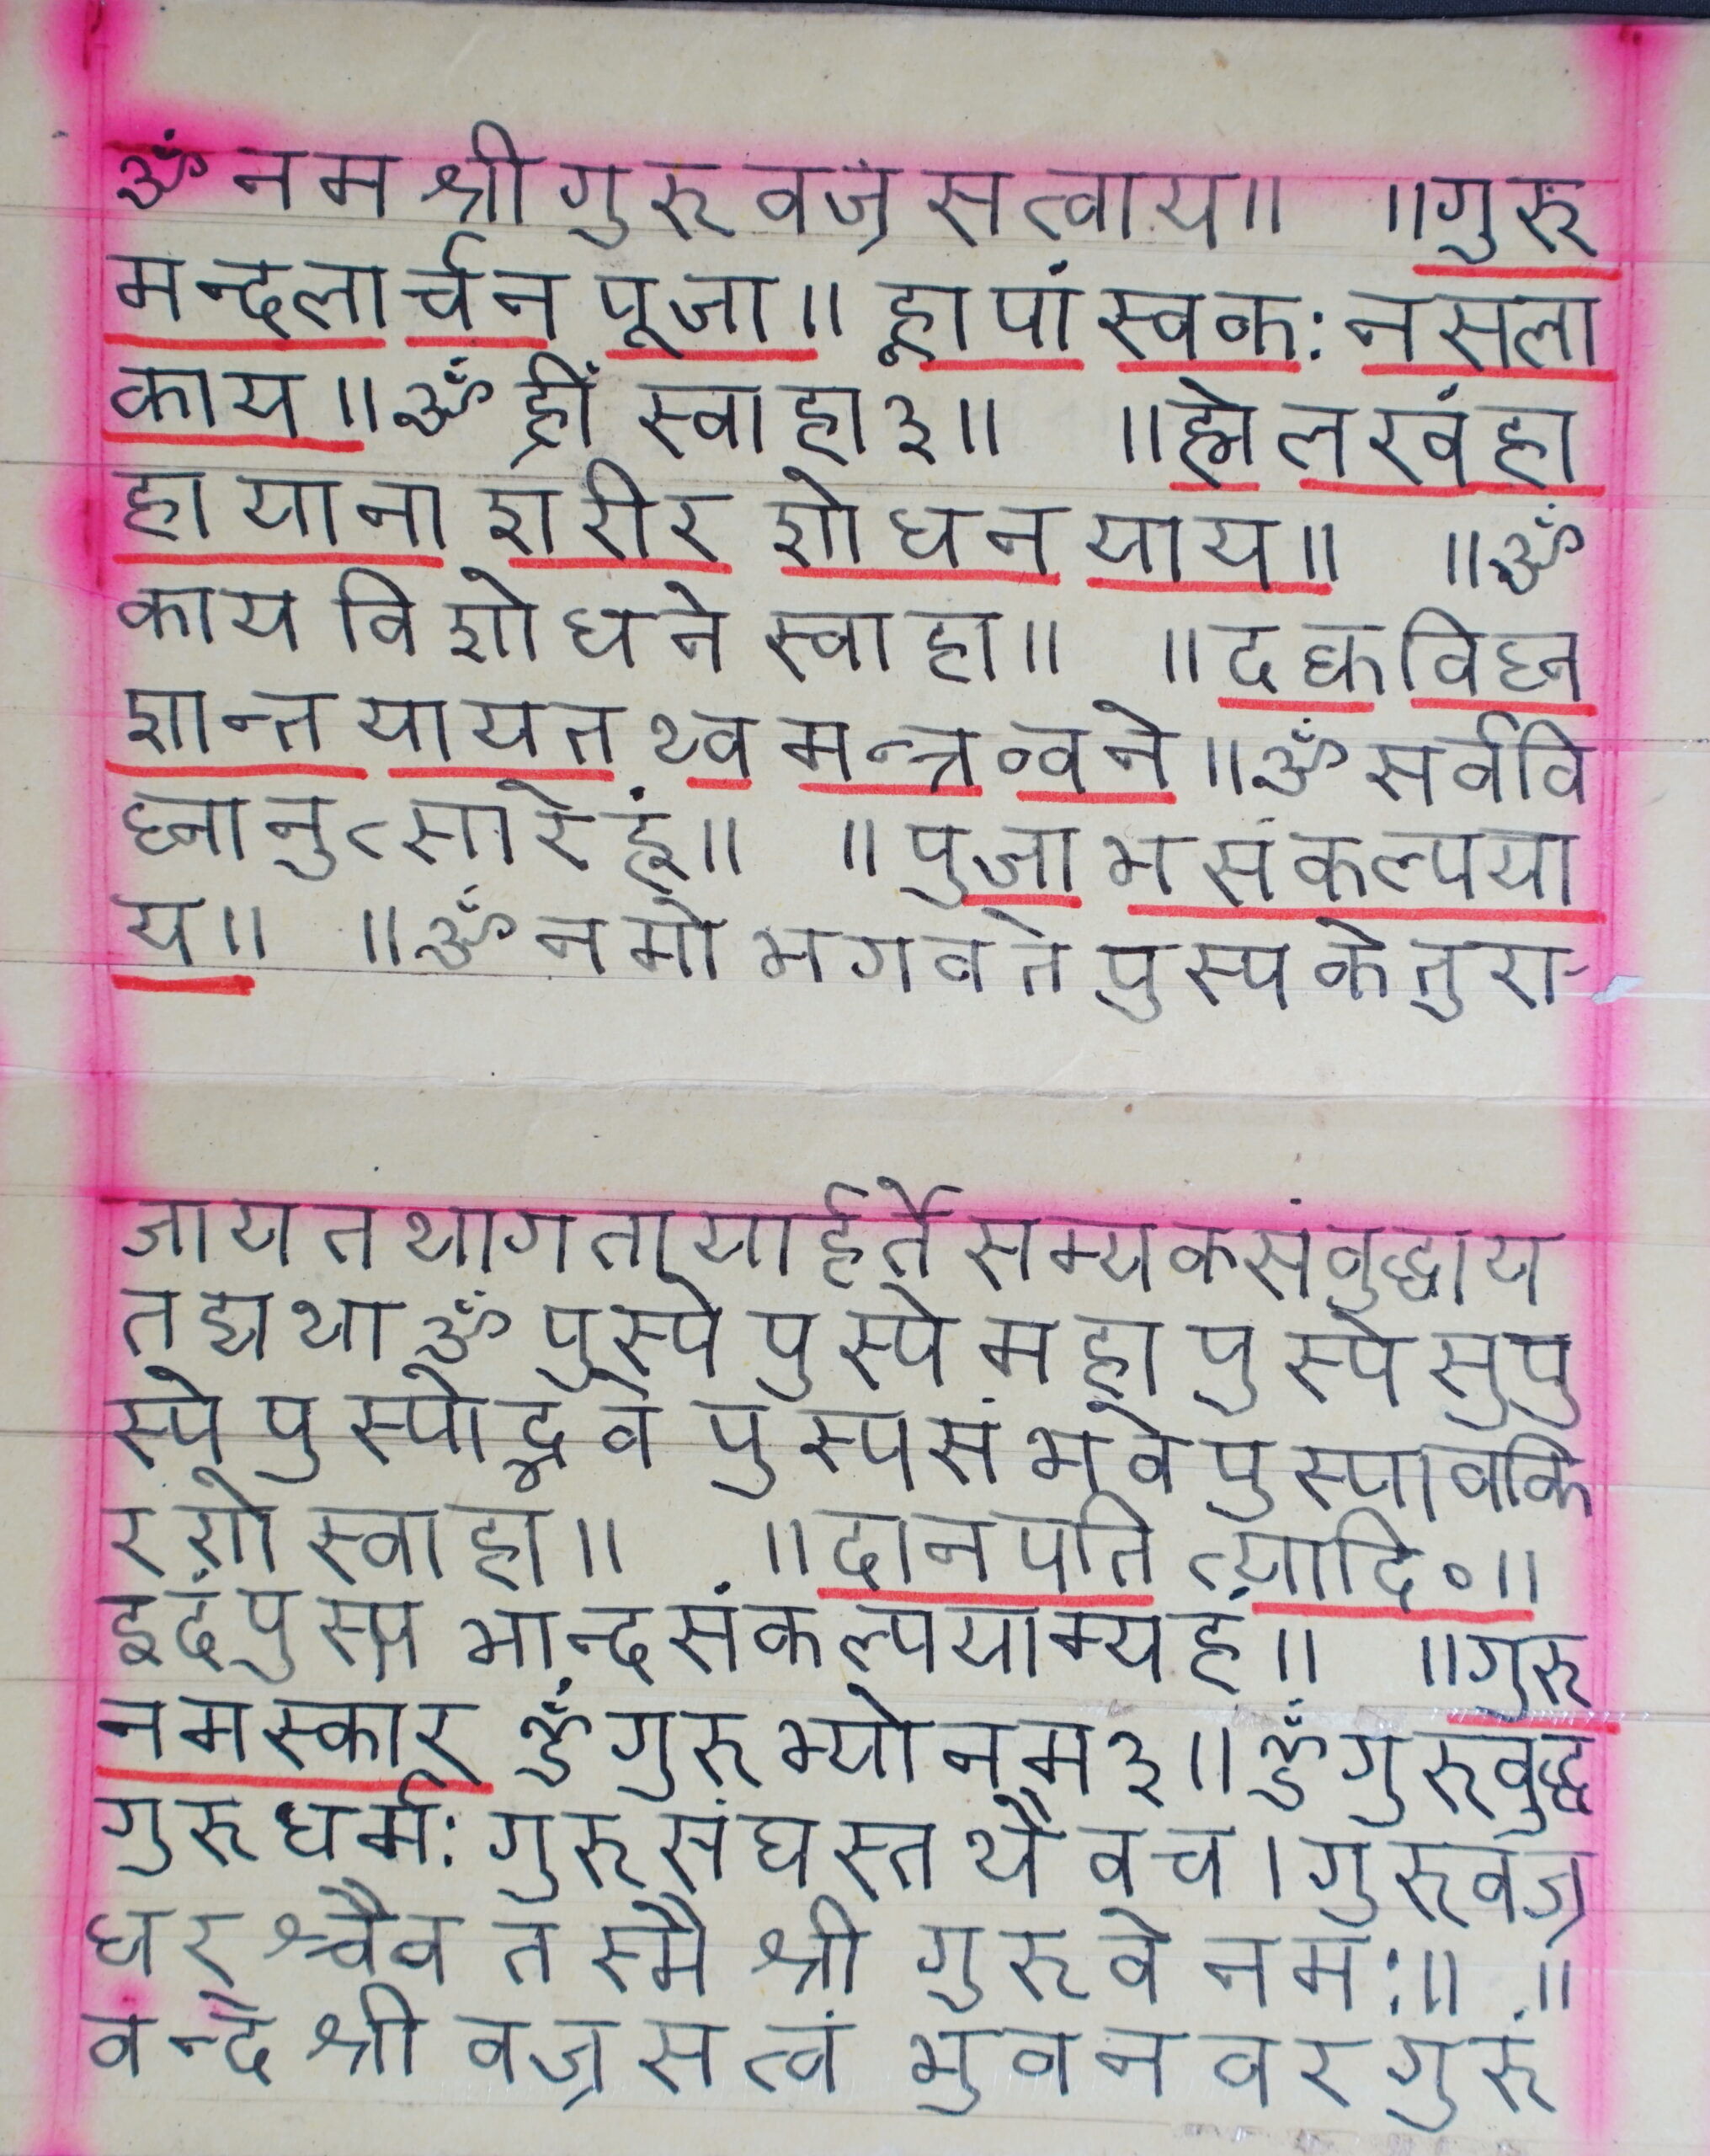 ॐ नम श्री गुरु वज्र सत्वाय॥ ॥गुरु
मन्दलार्चन पूजा॥ ह्नापां स्वकः नसला
काय॥ॐ ह्रीं स्वाहा३॥ ॥ह्मेलखंहा
हायाना शरीर शोधन याय॥ ॥ॐ
काय विशोधने स्वाहा॥ ॥दक्व विघ्न
शान्त यायत थ्व मन्त्र ब्वने॥ॐ सर्ववि
घ्नानुत्सारेहूं॥ ॥पुजाभ संकल्पया
य॥ ॥ॐ नमो भगवते पुस्पकेतुरा-
जाय तथागतायार्हते सम्यकसंबुद्धाय
तद्यथा ॐ पुस्पे पुस्पे महा पुस्पे सुपु
स्पे पुस्पोद्भवे पुस्पसंभवे पुस्पावकि
रणे स्वाहा॥ ॥दानपति त्यादि॰॥
इदंपुस्प भान्दसंकल्पयाम्यहं॥ ॥गुरु
नमस्कार ॐ गुरुभ्यो नम३॥ॐ गुरुबुद्ध
गुरुधर्मः गुरुसंघस्तथैवच।गुरुवज्र
धरश्चैव तस्मै श्री गुरुवे नमः॥ ॥
वन्दे श्री वज्रसत्वं भुवनवरगुरुं